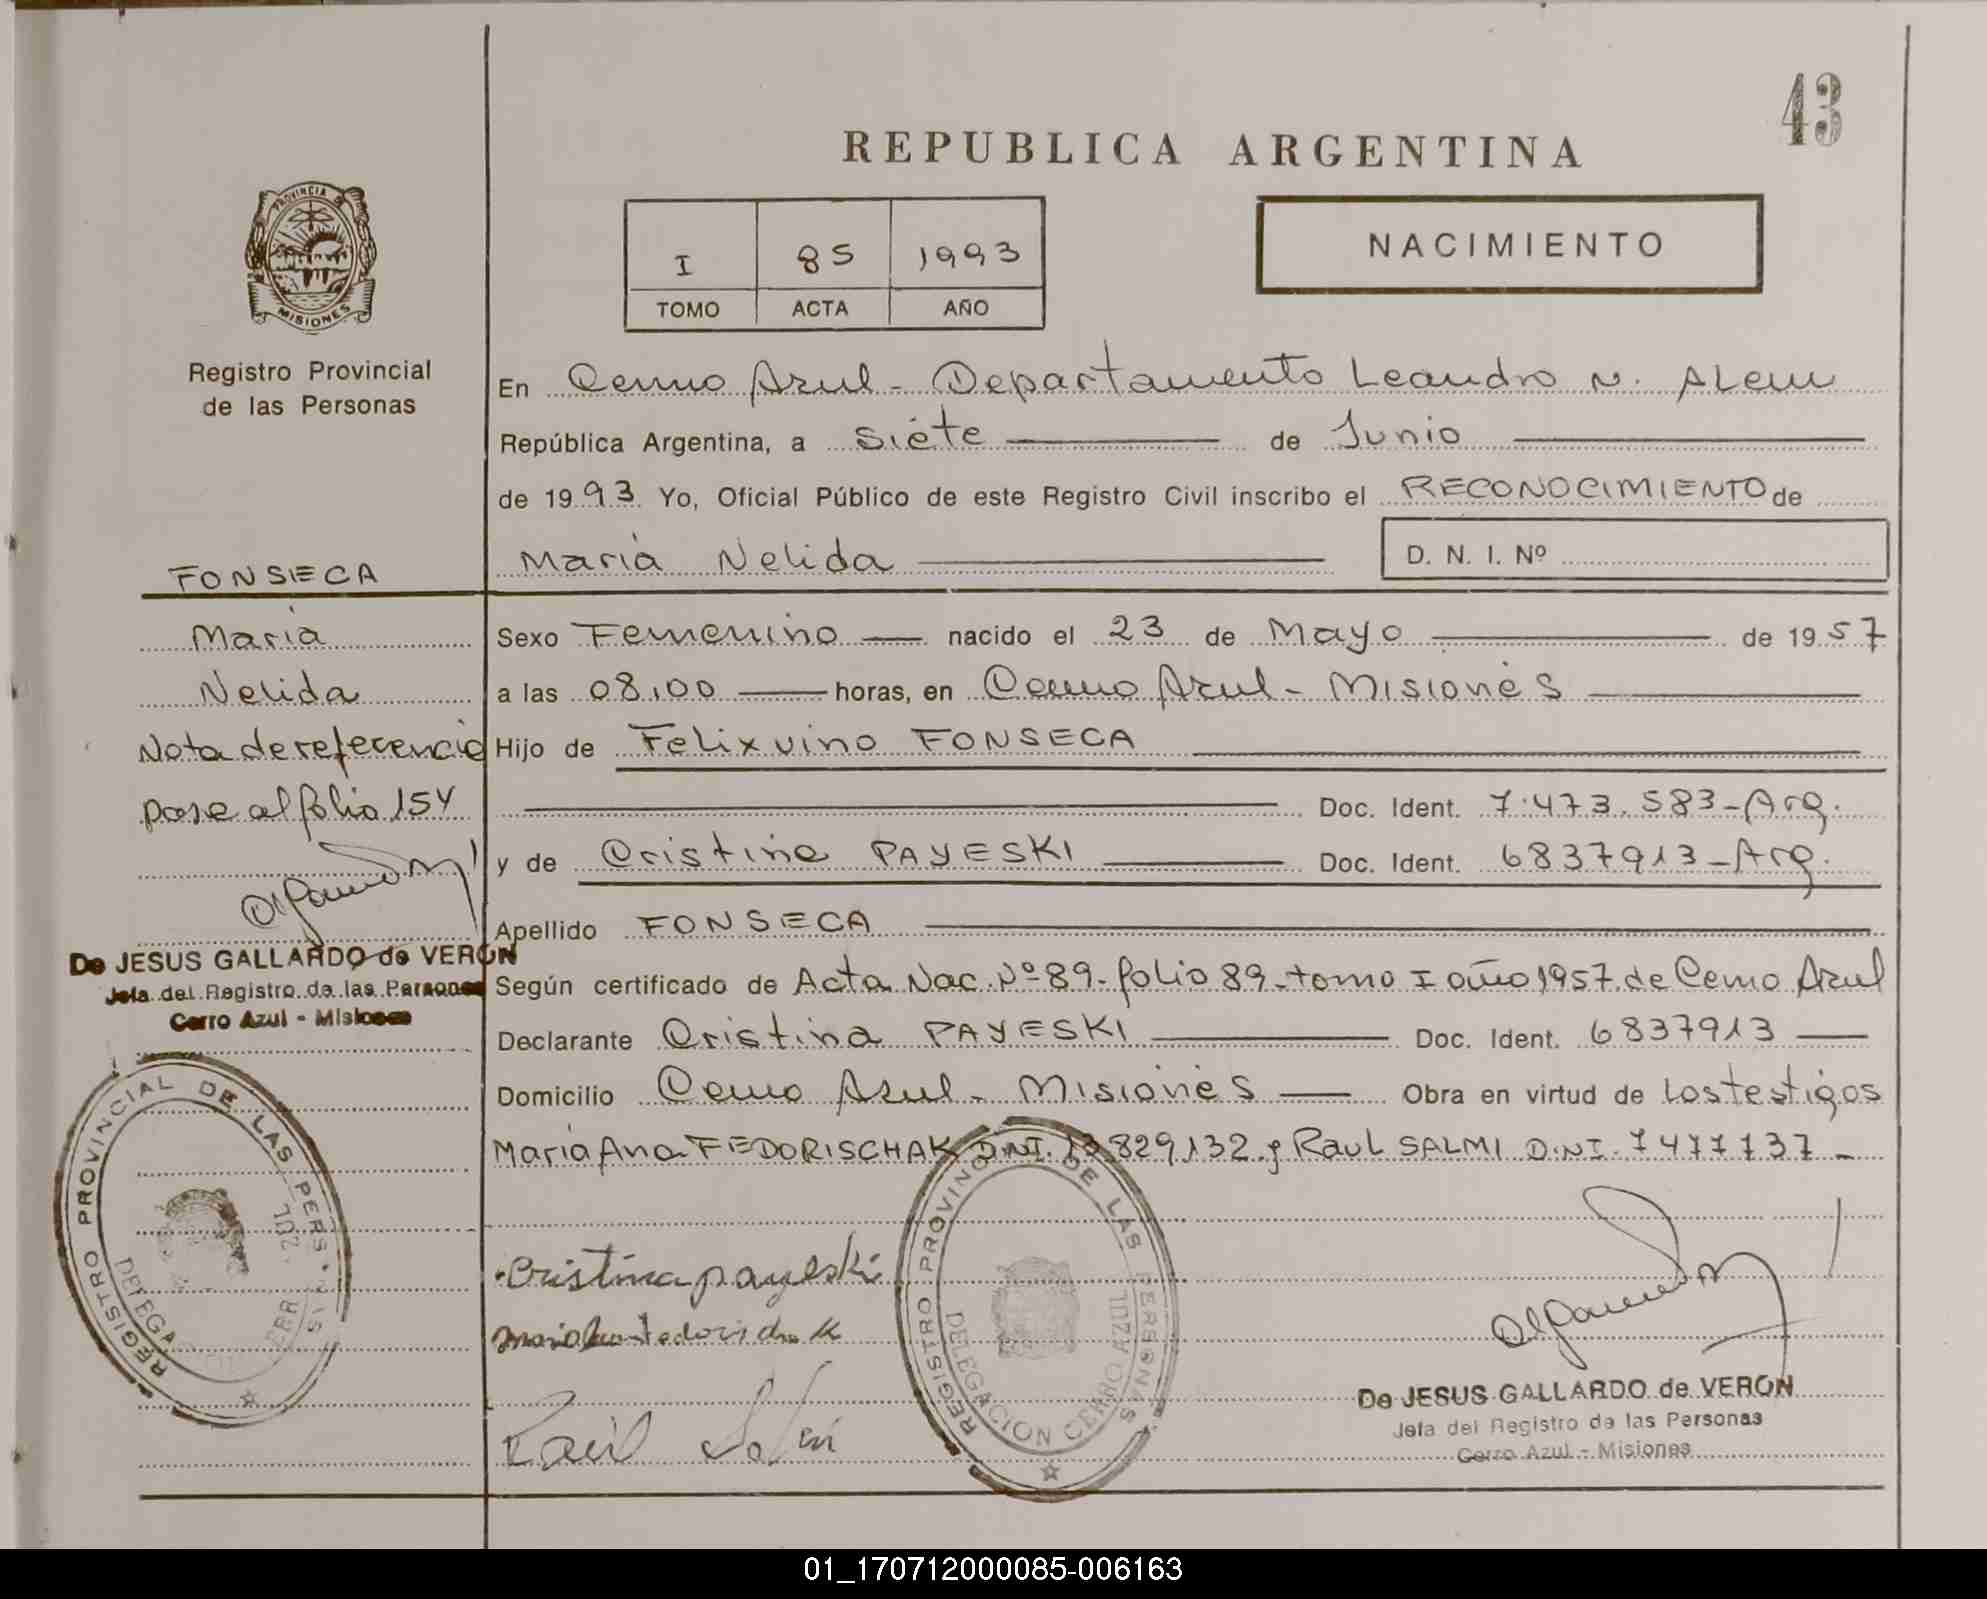 43
REPUBLICA ARGENTINA
PROVINCIA
MISIONES
NACIMIENTO
I 85 1993
TOMO ACTA AÑO
Registro Provincial
de las Personas
En Cerro Azul - Departamento Leandro N. ALem
República Argentina, a siete de Junio
de 1993 Yo, Oficial Público de este Registro Civil inscribo el RECONOCIMIENTO de
Maria Nelida D. N. I. Nº
FONSECA
Maria
Nelida
Nota de referencia
pase al folio 154
De JESUS GALLARDO de VERON
Jefa del Registro de las Personas
Cerro Azul - Misiones
REGISTRO PROVINCIAL DE LAS PERS
Sexo Femenino nacido el 23 de Mayo de 1957
a las 08,00 horas, en Cerro Azul - Misiones
Hijo de Felixvino FONSECA
Doc. Ident. 7.473.583-Arg.
y de Cristina PAYESKI Doc. Ident. 6837913-Arg.
Apellido FONSECA
Según certificado de Acta Nac. Nº 89- folio 89-tomo I año 1957 de Cerro Azul
Declarante Cristina PAYESKI Doc. Ident. 6837913
Domicilio Cerro Azul - Misiones Obra en virtud de los testigos
Maria Ana FEDORISCHAK D.N.I. 13829132 y Raul SALMI D.N.I. 7477737 -
Cristina payeski
REGISTRO PROVINCIAL DE LAS PERSONAS
DELEGACION CERRO AZUL
Raul
De JESUS GALLARDO de VERON
Jefa del Registro de las Personas
Cerro Azul - Misiones
01_170712000085-006163